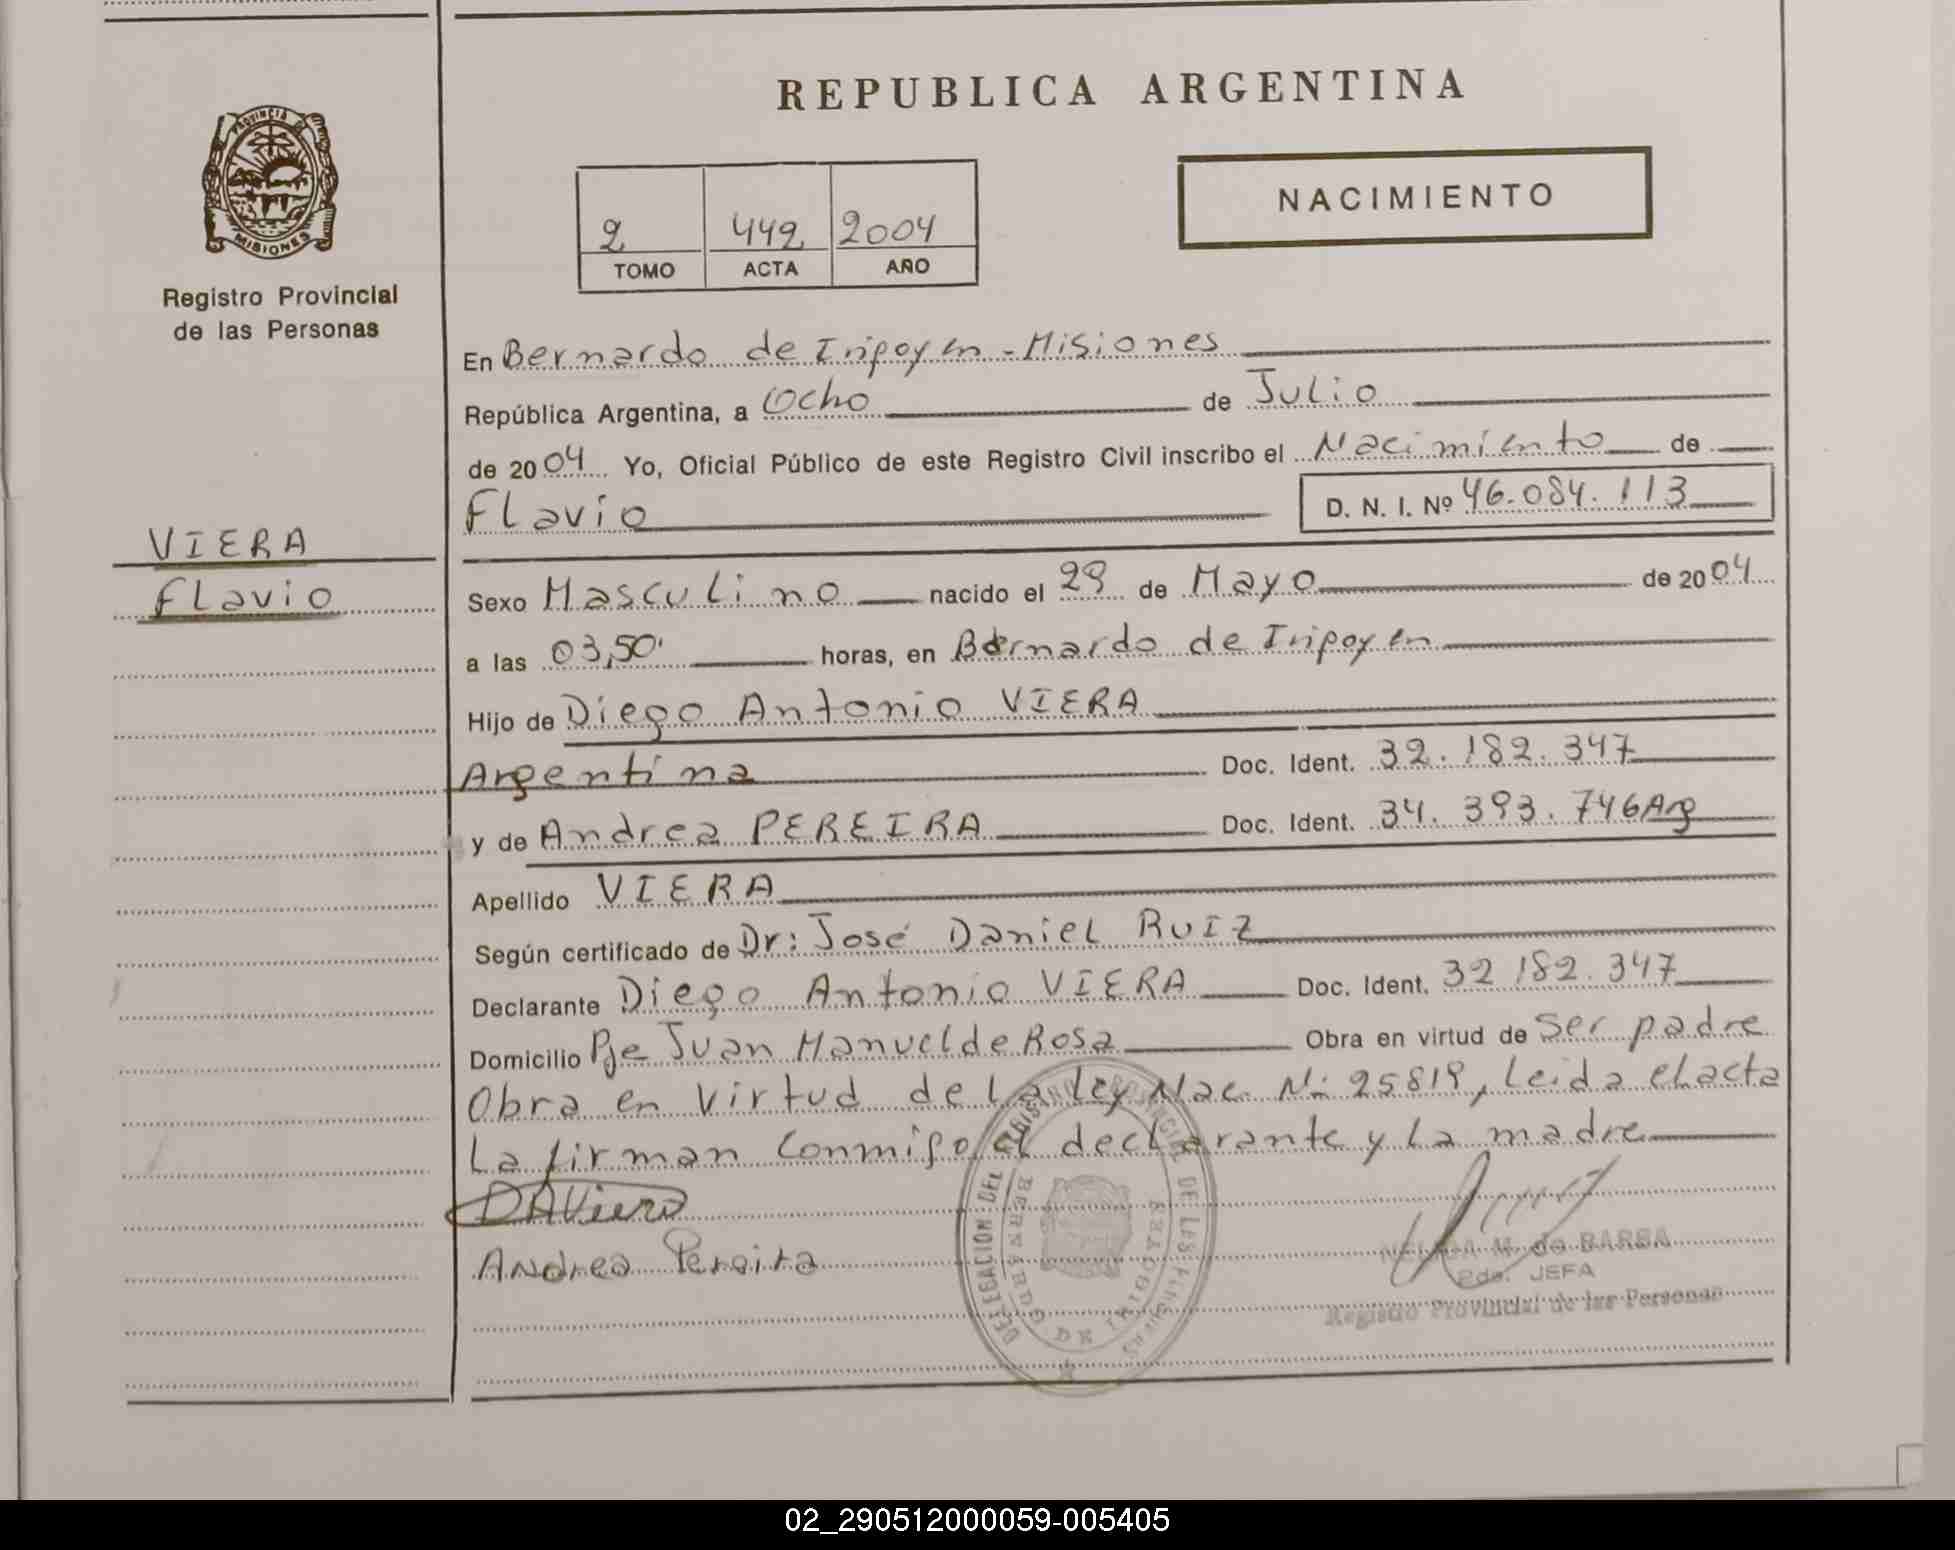 REPUBLICA ARGENTINA
PROVINCIA DE
MISIONES
Registro Provincial
de las Personas
2 442 2004
TOMO ACTA AÑO
NACIMIENTO
En Bernardo de Irigoyen - Misiones
República Argentina, a Ocho de Julio
de 2004 Yo, Oficial Público de este Registro Civil inscribo el Nacimiento de
Flavio D. N. I. Nº 46.084.113
VIERA
Flavio
Sexo Masculino nacido el 29 de Mayo de 2004
a las 03,50' horas, en Bernardo de Irigoyen
Hijo de Diego Antonio VIERA
Argentina Doc. Ident. 32.182.347
y de Andrea PEREIRA Doc. Ident. 34.393.746 Arg
Apellido VIERA
Según certificado de Dr: José Daniel RUIZ
Declarante Diego Antonio VIERA Doc. Ident. 32 182.347
Domicilio Pje Juan Manuel de Rosa Obra en virtud de Ser padre
Obra en virtud de La Ley Nac. Nº 25819, Leida el acta
La firman conmigo el declarante y La madre
DAViera
Andrea Pereira
DELEGACION DEL REGISTRO PROVINCIAL DE LAS PERSONAS
BERNARDO DE IRIGOYEN
M. de BARBA
2da. JEFA
Registro Provincial de las Personas
02_290512000059-005405